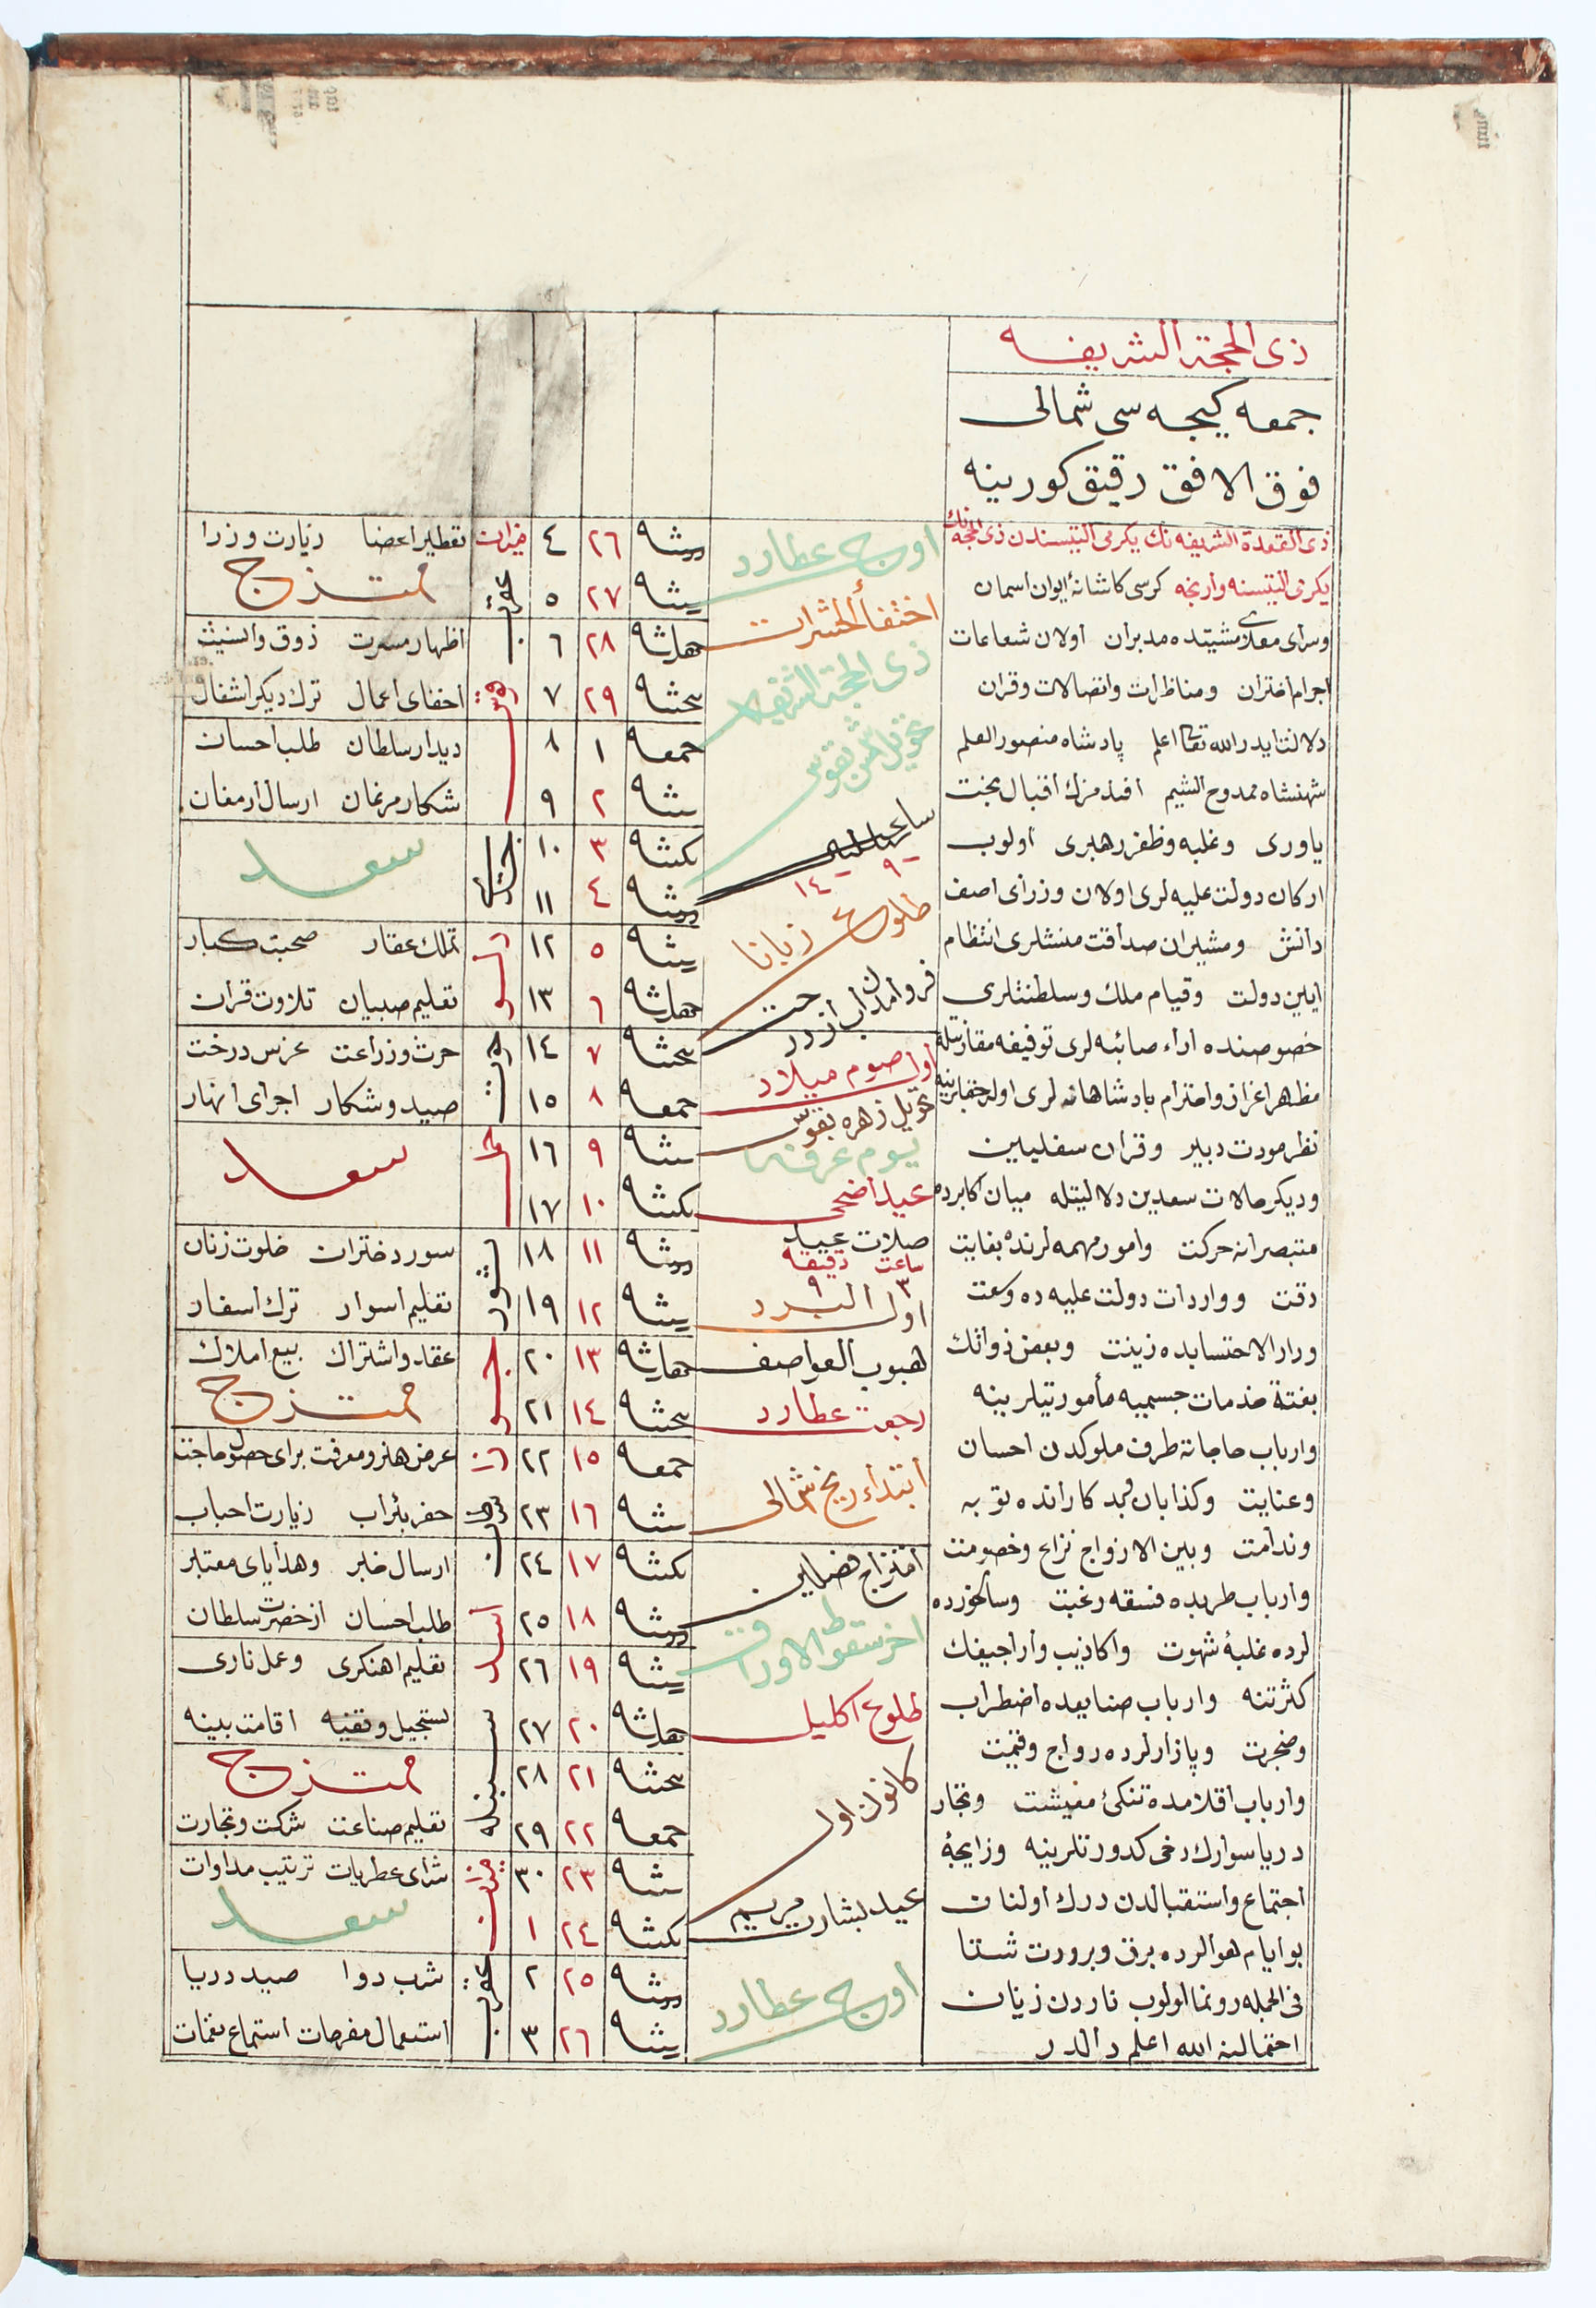 ذی الحجة الشریفه
جمعه کیجه سی شمالی
فوق الافق رقیق کورینه
ذی القعدة الشریفه نك یکرمی التیسندن ذی الحجه نك
یکرمی التیسنه وارنجه کرسی کاشانهٔ ایوان اسمان
وسرای معلای مشیتده مدبران اولان شعاعات
اجرام اختران ومناظرات واتصالات وقران
دلالتایدر الله تعالی اعلم پادشاه منصور العلم
شهنشاه ممدوح الشیم افندمزك اقبال بخت
یاوری وغلبه وظفر رهبری اولوب
ارکان دولت علیه لری اولان وزرای اصف
دانش ومشیران صداقت منشلری انتظام
ایین دولت وقیام ملك وسلطنتلری
خصوصنده اراء صائبه لری توفیقه مقارنتله
مظهر اعزاز واحترام پادشاهانه لری اوله جقلرینه
نظر مودت دبیر وقران سفلیین
ودیکر حالات سعدین دلالیتله میان اکابرده
متبصرانه حرکت وامور مهمه لرنده بغایت
دقت وواردات دولت علیه ده وسعت
ودار الاحتسابده زینت وبعض ذواتك
بغتة خدمات جسیمیه مأموریتلرینه
وارباب حاجاته طرف ملوکدن احسان
وعنایت وکذابان بد کارانده توبه
وندامت وبین الازواج نزاع وخصومت
وارباب طربده فسقه رغبت وسالخورده
لرده غلبهٔ شهوت واکاذیب واراجیفك
کثرتنه وارباب صنایعده اضطراب
وضجرت وپازارلرده رواج وقیمت
وارباب اقلامده تنکئ معیشت وتجار
دریا سوارك دخی کدورتلرینه وزایجهٔ
اجتماع واستقبالدن درك اولنان
بو ایام هوالرده برق وبرودت شتا
فی الجمله رونما اولوب ناردن زیان
احتمالنه الله اعلم دالدر
اوج عطارد
اختفأ الحشرات
ذی الحجة الشریفه
تحویل شمس بقوس
ساعت لیله
٩ ١٤
طلوع زبانا
فروامدن اب از درخت
اول صوم میلاد
تحویل زهره بقوس
یوم عرفه
عید اضحی
صلات عید
ساعت دقیقه
٣ ٩
اول البرد
هبوب العواصف
رجعت عطارد
أبتداء ریح شمالی
امتزاج فصلین
اخر سقوط الاوراق
طلوع اکلیل
کانون اول
عید بشارت مریم
اوج عطارد
دوشنبه ٢٦ ٤ میزان تقطیر اعضا زیارت وزرا
سیشنبه ٢٧ ٥ عقرب ممتزج
چهارشنبه ٢٨ ٦ اظهار مسرت ذوق والنیت
پنجشنبه ٢٩ ٧ قوس اخفای اعمال ترك دیکر اشغال
جمعه ١ ٨ دیدار سلطان طلب احسان
شنبه ٢ ٩ شکار مرغان ارسال ارمغان
یکشنبه ٣ ١٠ جدی سعد
دوشنبه ٤ ١١
سیشنبه ٥ ١٢ دلو تملك عقار صحبت کبار
چهارشنبه ٦ ١٣ تعلیم صبیان تلاوت قران
پنجشنبه ٧ ١٤ حوت حرث وزراعت غرس درخت
جمعه ٨ ١٥ صید وشکار اجرای انهار
شنبه ٩ ١٦ حمل سعد
یکشنبه ١٠ ١٧
دوشنبه ١١ ١٨ ثور سور دختران خلوت زنان
سیشنبه ١٢ ١٩ تعلیم اسوار ترك اسفار
چهارشنبه ١٣ ٢٠ جوزا عقد واشتراك بیع املاك
پنجشنبه ١٤ ٢١ ممتزج
جمعه ١٥ ٢٢ سرطان عرض هنر ومعرفت برای حصول حاجت
شنبه ١٦ ٢٣ حفر بئر اب زیارت احباب
یکشنبه ١٧ ٢٤ ارسال خبر وهدایای معتبر
دوشنبه ١٨ ٢٥ اسد طلب احسان از حضرت سلطان
سیشنبه ١٩ ٢٦ تعلیم اهنکری وعمل ناری
چهارشنبه ٢٠ ٢٧ سنبله تسجیل اقامت بینه
پنجشنبه ٢١ ٢٨ ممتزج
جمعه ٢٢ ٢٩ تعلیم صناعت شرکت وتجارت
شنبه ٢٣ ٣٠ میزان شرای عطریات ترتیب مداوات
یکشنبه ٢٤ ١ سعد
دوشنبه ٢٥ ٢ عقرب شرب دوا صید دریا
سیشنبه ٢٦ ٣ استعمال مفرحات استماع نغمات